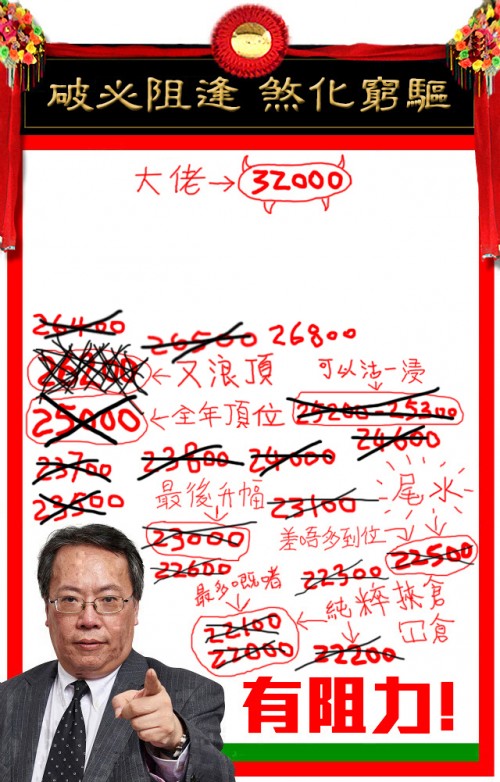 破必阻逢 煞化窮驅
大佬→32000
26400
26500 26800
26200←又浪頂
可以沽一浸
25000←全年頂位
25200-25300
24600
23700
23800
24000
23500
最後升幅
23100
尾水
23000
差唔多到位→
22500
22600
22300
最多嘅啫
22100
22000
←純粹挾倉
冚倉
22200
有阻力!